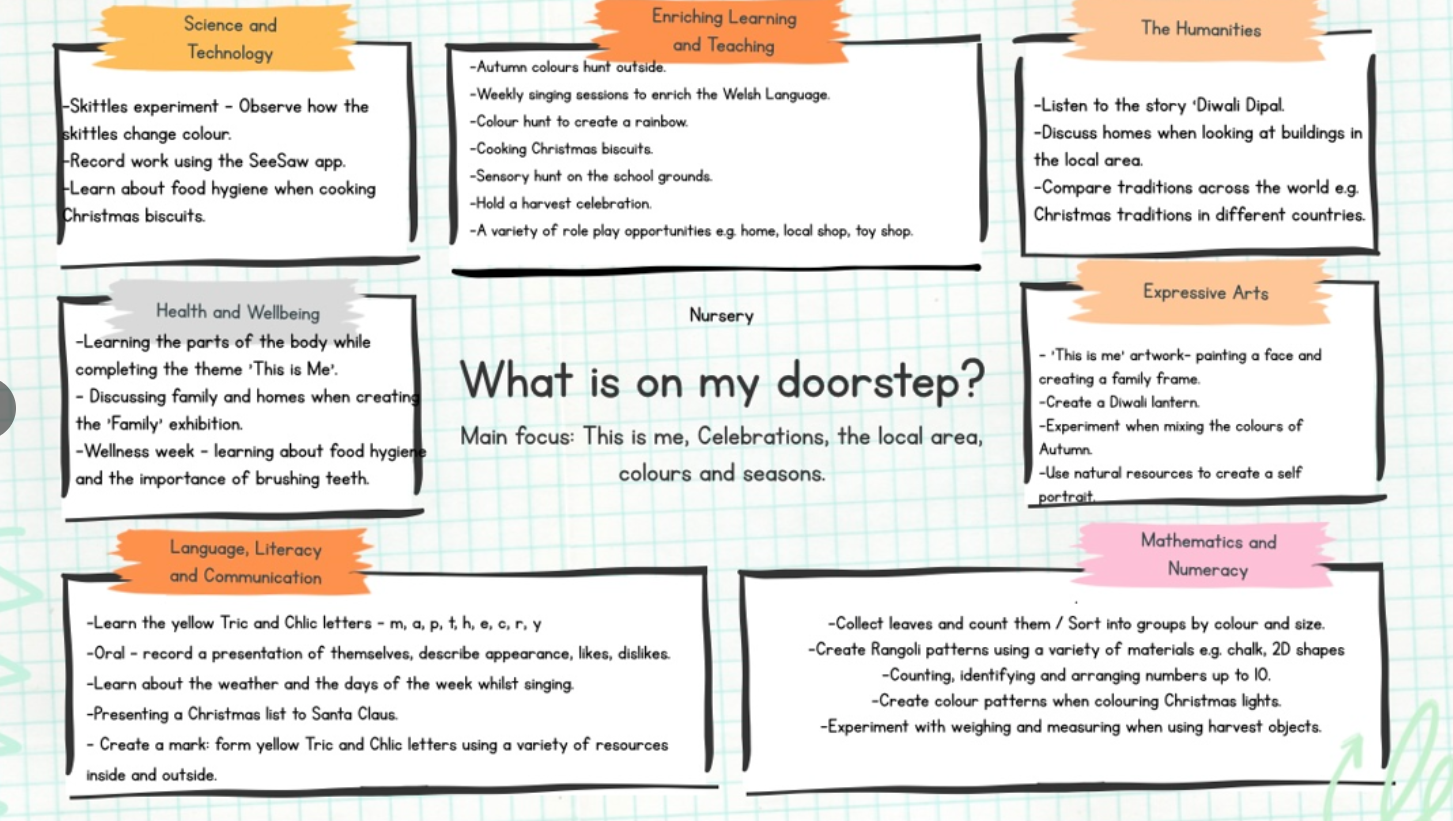 Science and
Technology
-Skittles experiment - Observe how the
skittles change colour.
-Record work using the SeeSaw app.
-Learn about food hygiene when cooking
Christmas biscuits.
Enriching Learning
and Teaching
-Autumn colours hunt outside.
-Weekly singing sessions to enrich the Welsh Language.
-Colour hunt to create a rainbow.
-Cooking Christmas biscuits.
-Sensory hunt on the school grounds.
-Hold a harvest celebration.
-A variety of role play opportunities e.g. home, local shop, toy shop.
The Humanities
-Listen to the story 'Diwali Dipal.
-Discuss homes when looking at buildings in
the local area.
-Compare traditions across the world e.g.
Christmas traditions in different countries.
Health and Wellbeing
-Learning the parts of the body while
completing the theme 'This is Me'.
- Discussing family and homes when creating
the 'Family' exhibition.
-Wellness week - learning about food hygiene
and the importance of brushing teeth.
Nursery
What is on my doorstep?
Main focus: This is me, Celebrations, the local area,
colours and seasons.
Expressive Arts
- 'This is me' artwork- painting a face and
creating a family frame.
-Create a Diwali lantern.
-Experiment when mixing the colours of
Autumn.
-Use natural resources to create a self
portrait.
Language, Literacy
and Communication
-Learn the yellow Tric and Chlic letters - m, a, p, t, h, e, c, r, y
-Oral - record a presentation of themselves, describe appearance, likes, dislikes.
-Learn about the weather and the days of the week whilst singing.
-Presenting a Christmas list to Santa Claus.
- Create a mark: form yellow Tric and Chlic letters using a variety of resources
inside and outside.
Mathematics and
Numeracy
.
-Collect leaves and count them / Sort into groups by colour and size.
-Create Rangoli patterns using a variety of materials e.g. chalk, 2D shapes
-Counting, identifying and arranging numbers up to 10.
-Create colour patterns when colouring Christmas lights.
-Experiment with weighing and measuring when using harvest objects.